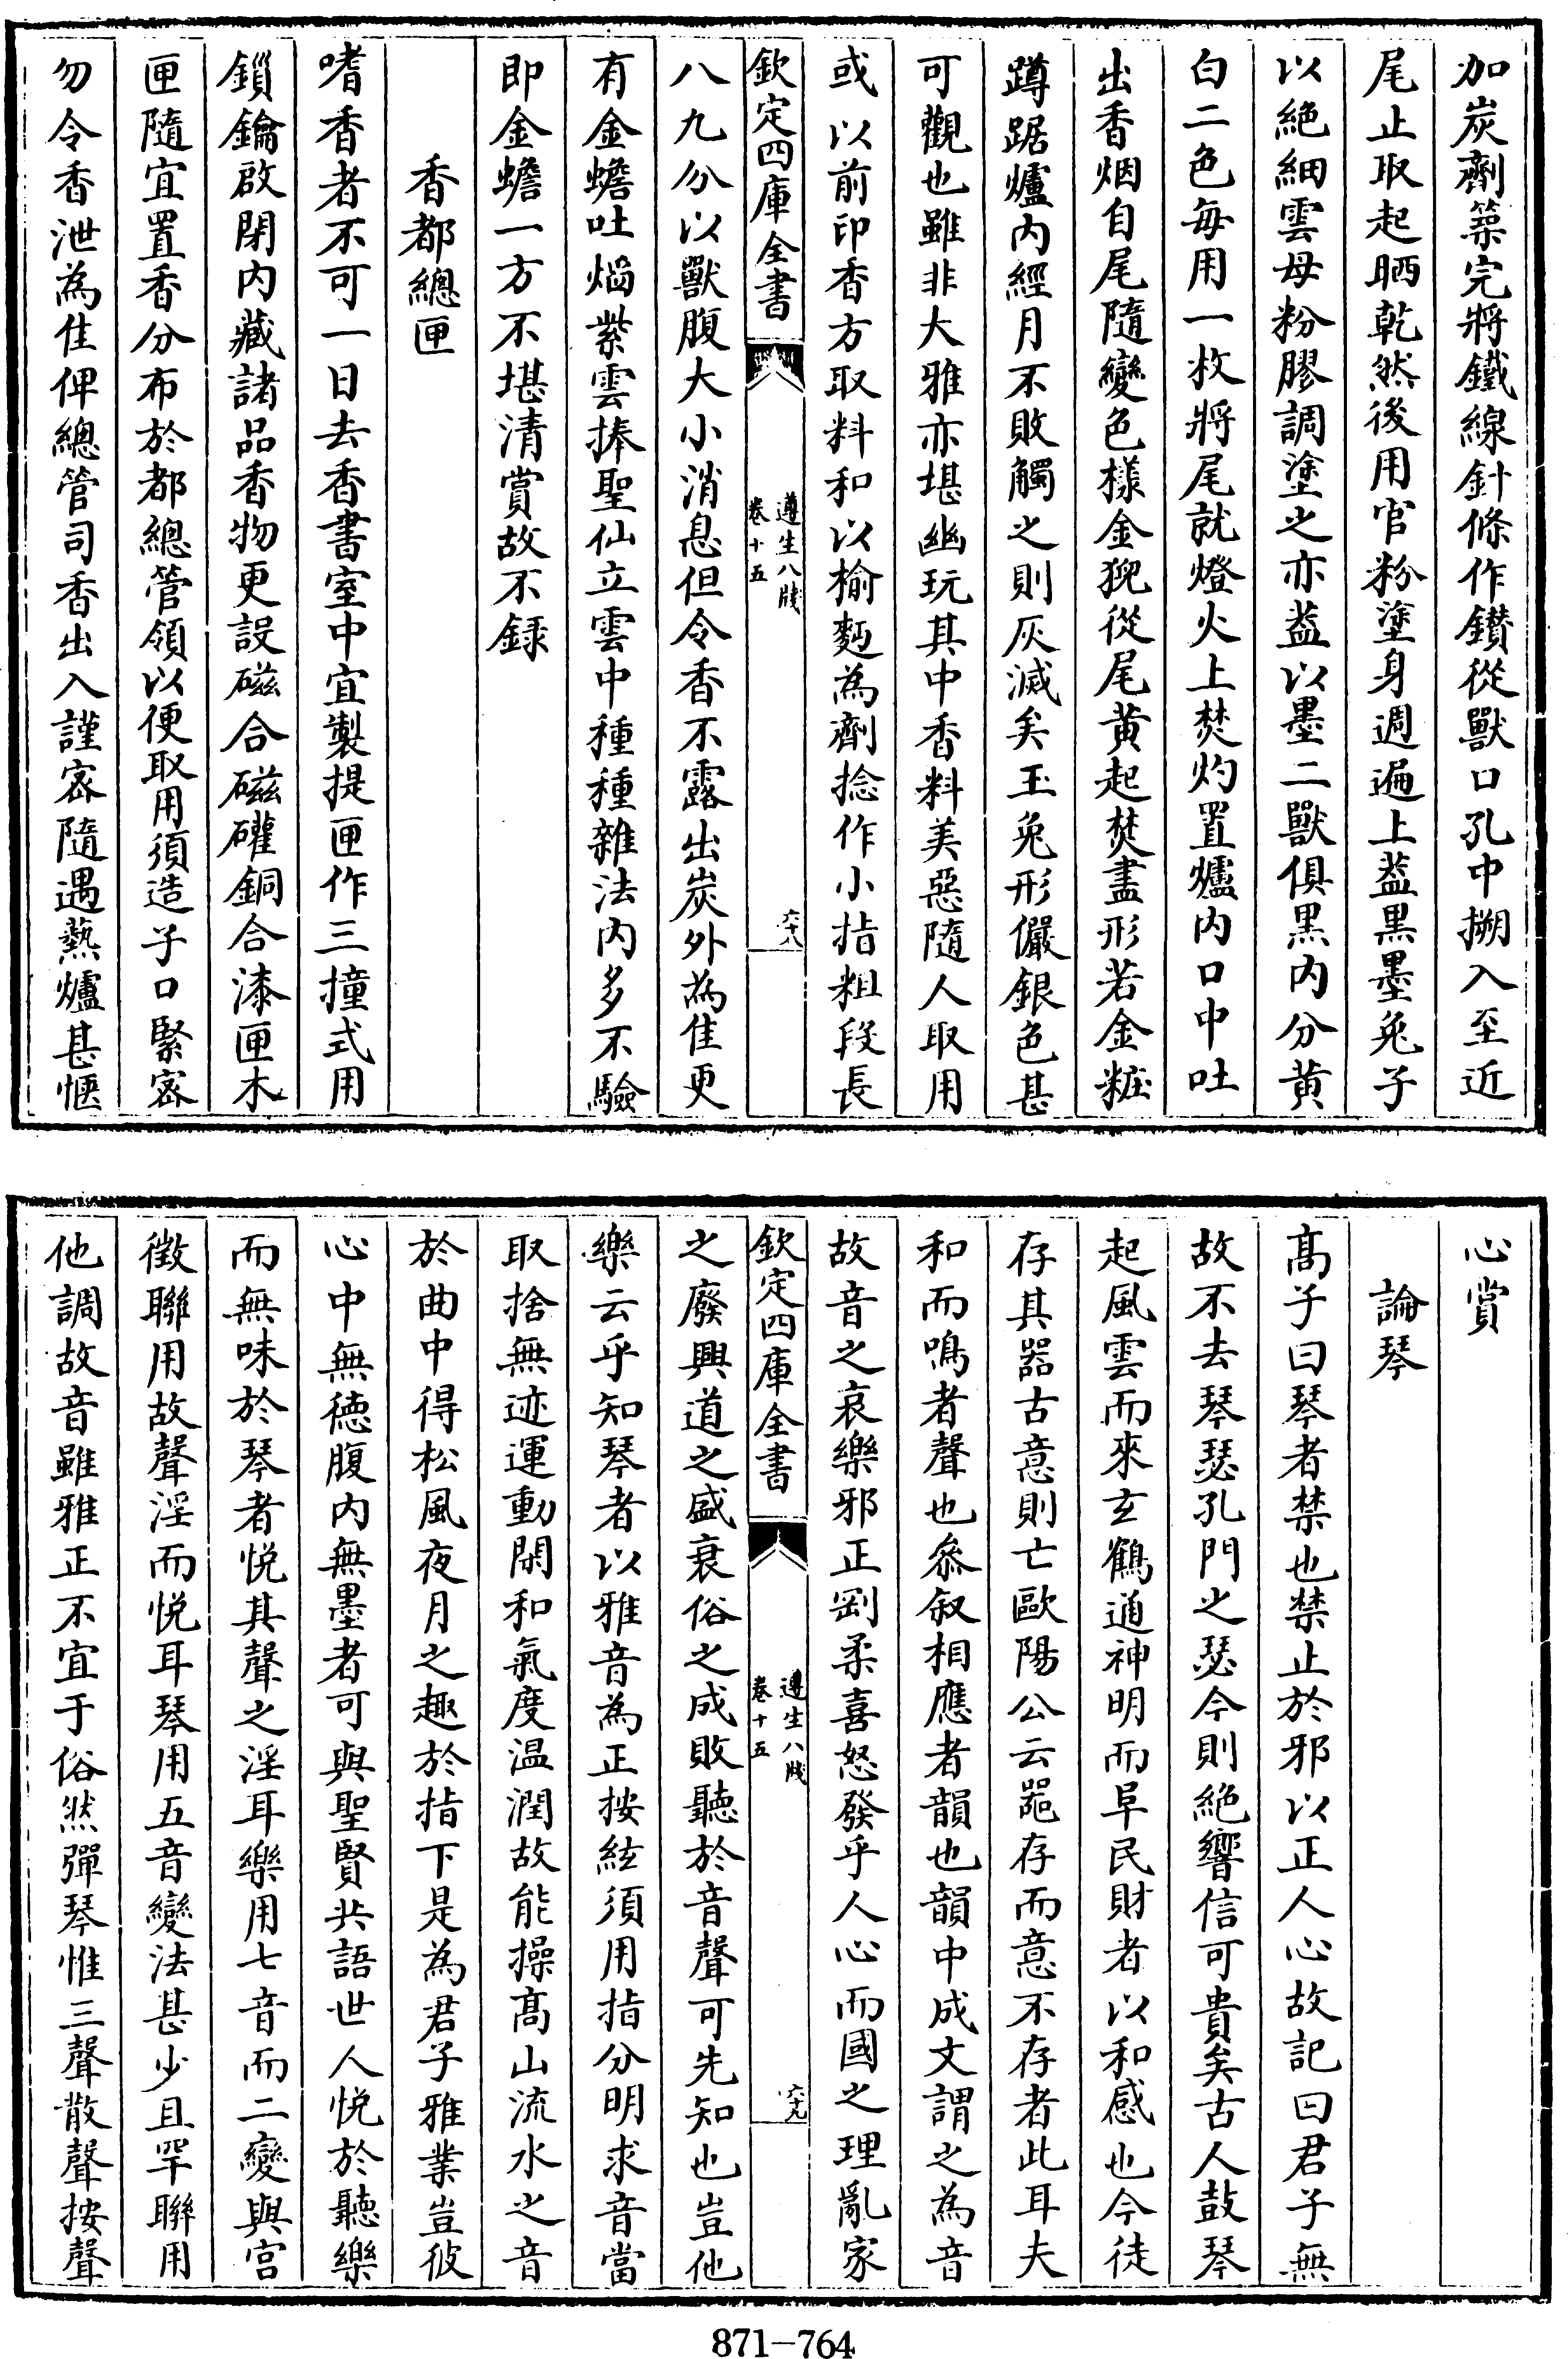 加炭劑築完將鐵線針條作鑚從獸口孔中搠入至近
尾止取起晒乾然後用官粉塗身週遍上葢黒墨兎子
以絶細雲母粉膠調塗之亦葢以墨二獸俱黒内分黄
白二色每用一枚將尾就燈火上焚灼置爐内口中吐
出香烟自尾隨變色様金猊從尾黄起焚盡形若金粧
蹲踞爐内經月不敗觸之則灰滅矣玉兎形儼銀色甚
可觀也雖非大雅亦堪幽玩其中香料美惡隨人取用
或以前印香方取料和以榆麪為劑捻作小指粗段長
欽定四庫全書
遵生八牋
卷十五
六十八
八九分以獸腹大小消息但令香不露出炭外為佳更
有金蟾吐熖紫雲捧聖仙立雲中種種雜法内多不驗
即金蟾一方不堪清賞故不録
香都總匣
嗜香者不可一日去香書室中宜製提匣作三撞式用
鎖鑰啟閉内藏諸品香物更設磁合磁礶銅合漆匣木
匣隨宜置香分布於都總管領以便取用須造子口緊宻
勿令香泄為佳俾總管司香出入謹宻隨遇爇爐甚愜
心賞
論琴
髙子曰琴者禁也禁止於邪以正人心故記曰君子無
故不去琴瑟孔門之瑟今則絶響信可貴矣古人鼓琴
起風雲而來玄鶴通神明而阜民財者以和感也今徒
存其器古意則亡歐陽公云器存而意不存者此耳夫
和而鳴者聲也叅叙相應者韻也韻中成文謂之為音
故音之哀樂邪正剛柔喜怒發乎人心而國之理亂家
欽定四庫全書
遵生八牋
卷十五
六十九
之廢興道之盛衰俗之成敗聽於音聲可先知也豈他
樂云乎知琴者以雅音為正按絃須用指分明求音當
取捨無迹運動閒和氣度温潤故能操髙山流水之音
於曲中得松風夜月之趣於指下是為君子雅業豈彼
心中無徳腹内無墨者可與聖賢共語世人悦於聽樂
而無味於琴者悦其聲之淫耳樂用七音而二變與宫
徵聯用故聲淫而悦耳琴用五音變法甚少且罕聯用
他調故音雖雅正不宜于俗然彈琴惟三聲散聲按聲
871-764